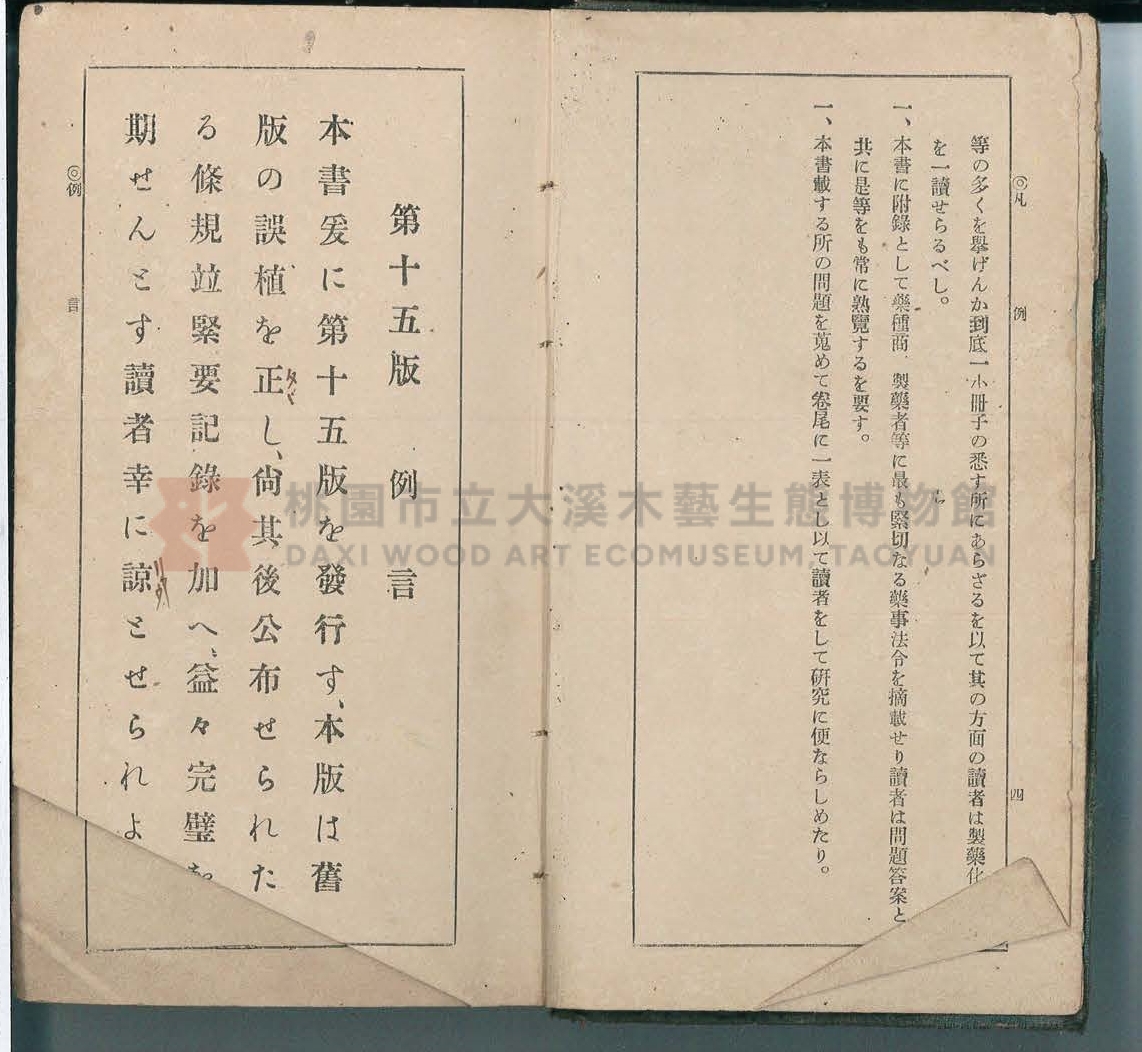 ◎凡例 四
等の多くを擧げんか到底一小冊子の悉す所にあらざるを以て其の方面の讀者は製藥化
を一讀せらるべし。
一、本書に附錄として藥種商、製藥者等に最も緊切なる藥事法令を摘載せり讀者は問題答案と
共に是等をも常に熟覽するを要す。
一、本書載する所の問題を蒐めて卷尾に一表とし以て讀者をして研究に便ならしめたり。
第十五版 例言
本書爰に第十五版を發行す、本版は舊
版の誤植を正し、尙其後公布せられた
る條規竝緊要記錄を加へ、益々完璧を
期せんとす讀者幸に諒とせられよ
◎例言
桃園市立大溪木藝生態博物館
DAXI WOOD ART ECOMUSEUM, TAOYUAN